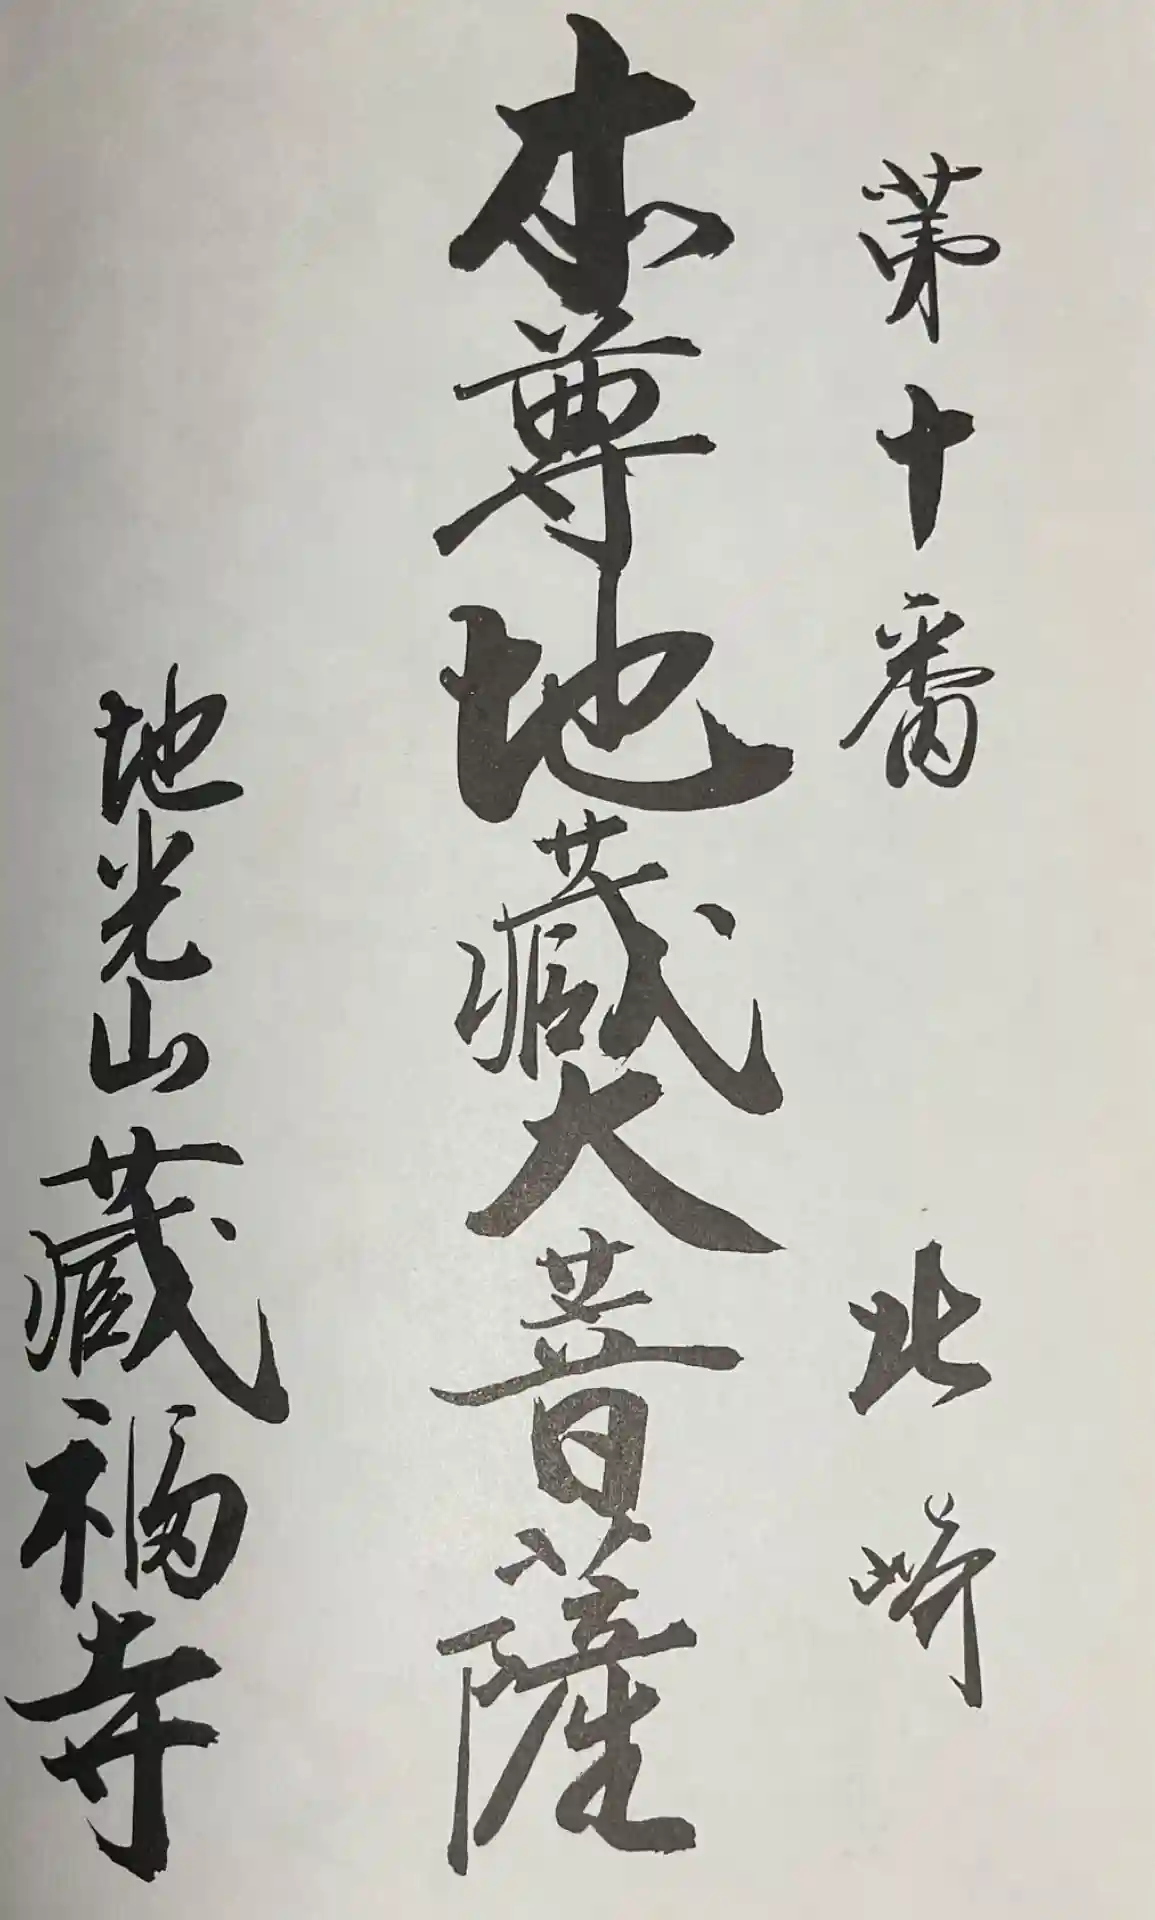 第十番 北崎
本尊地蔵大菩薩
地光山蔵福寺